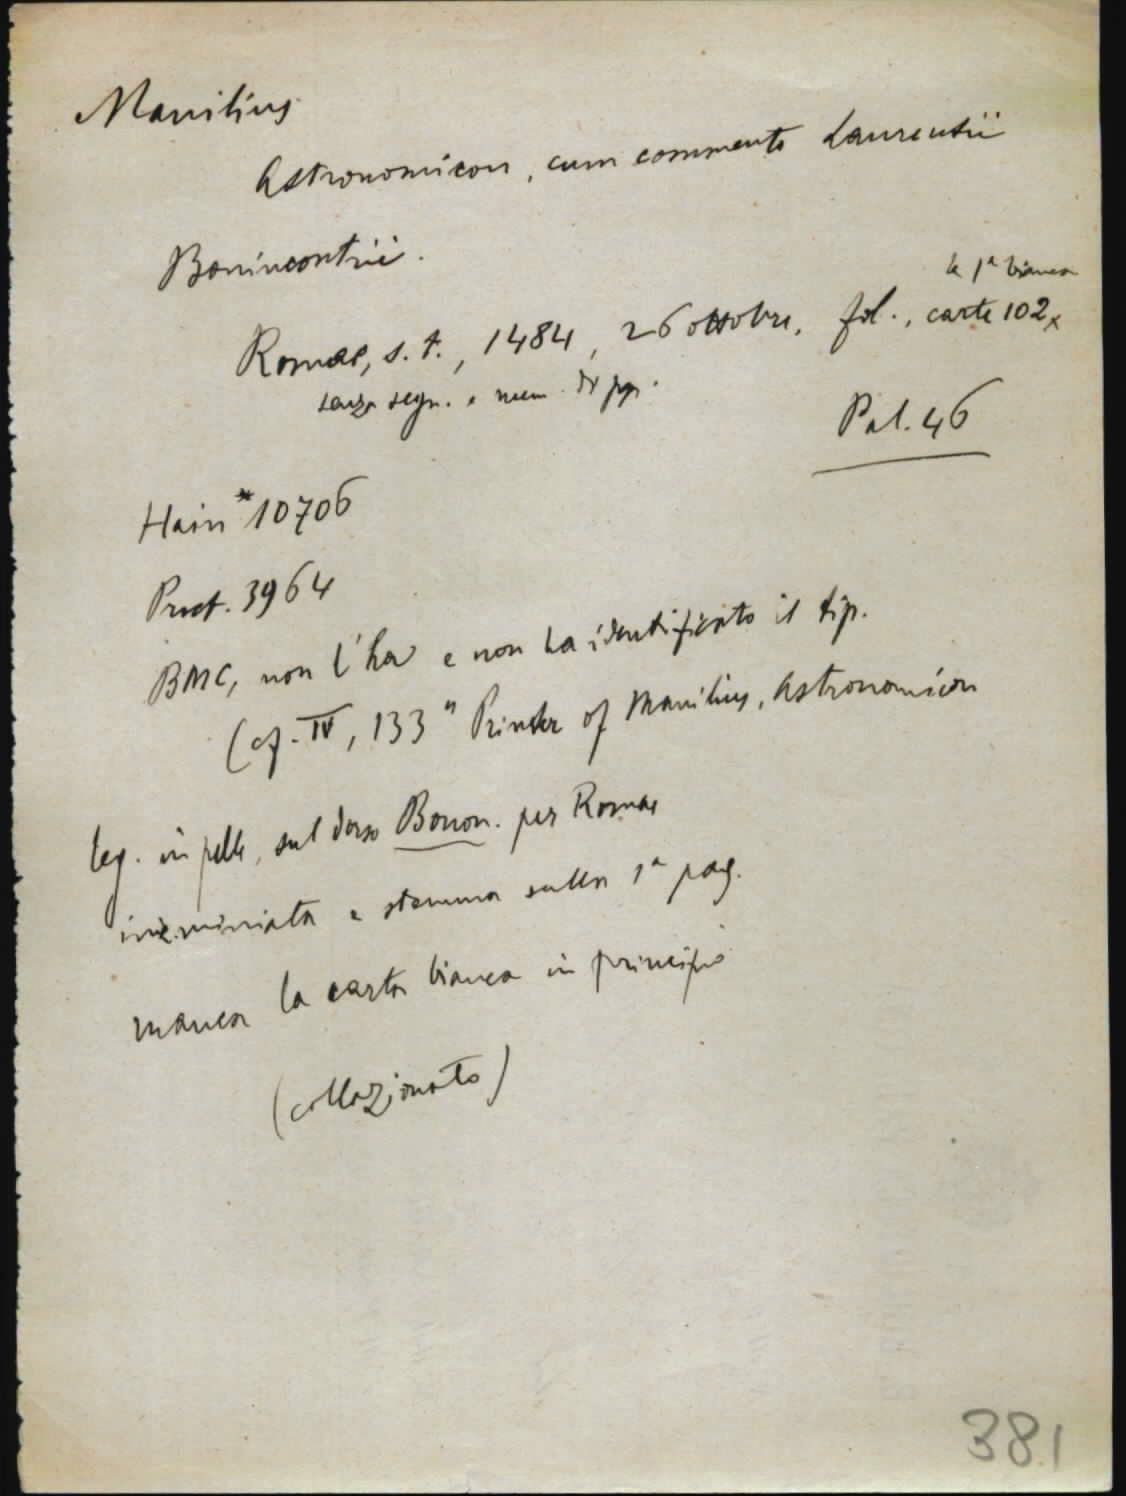 Manilius
Astronomicon, cum commento Laurentii
Bonincontrii.
la 1ª bianca
Romae, s. t., 1484, 26 ottobre, fol., carte 102x
senza segn. e num. di pp.
Pal. 46
Hain *10706
Proct. 3964
BMC, non l'ha e non ha identificato il tip.
(cf. IV, 133 "Printer of Manilius, Astronomicon
leg. in pelle, sul dorso Bonon. per Romae
iniz. miniata e stemma sulla 1ª pag.
manca la carta bianca in principio
(collazionato)
381